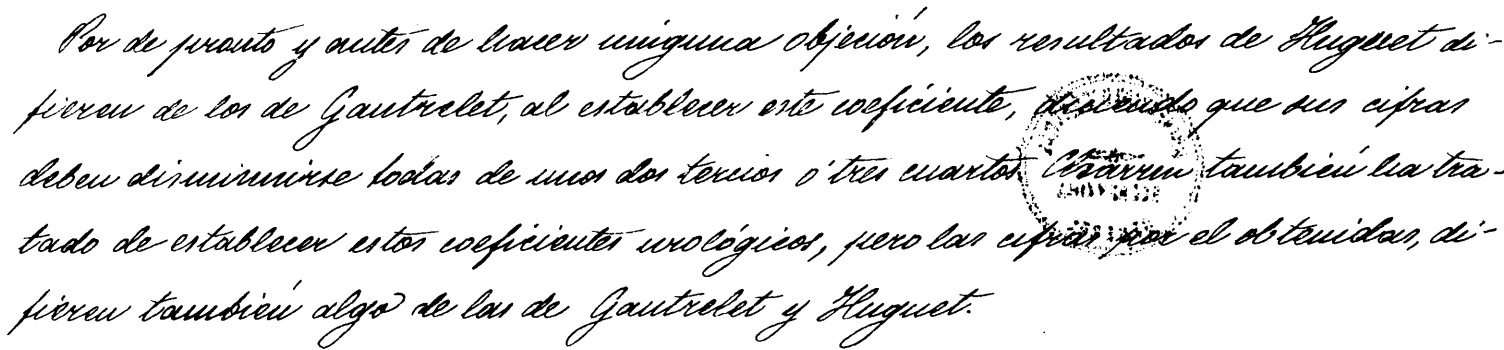 Por de pronto y antes de hacer ninguna objeción, los resultados de Huguet di-
fieren de los de Gautrelet, al establecer este coeficiente, diciendo que sus cifras
deben disminuirse todas de unos dos tercios ó tres cuartos. también ha tra-
tado de establecer estos coeficientes urológicos, pero las cifras por el obtenidas, di-
fieren también algo de las de Gautrelet y Huguet.